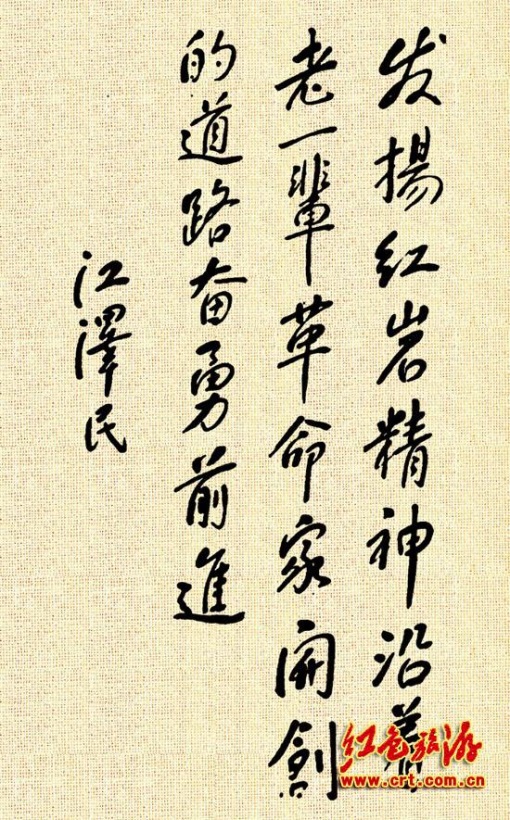 发揚红岩精神沿着
老一輩革命家開創
的道路奋勇前進
江澤民
红色旅游
www.crt.com.cn